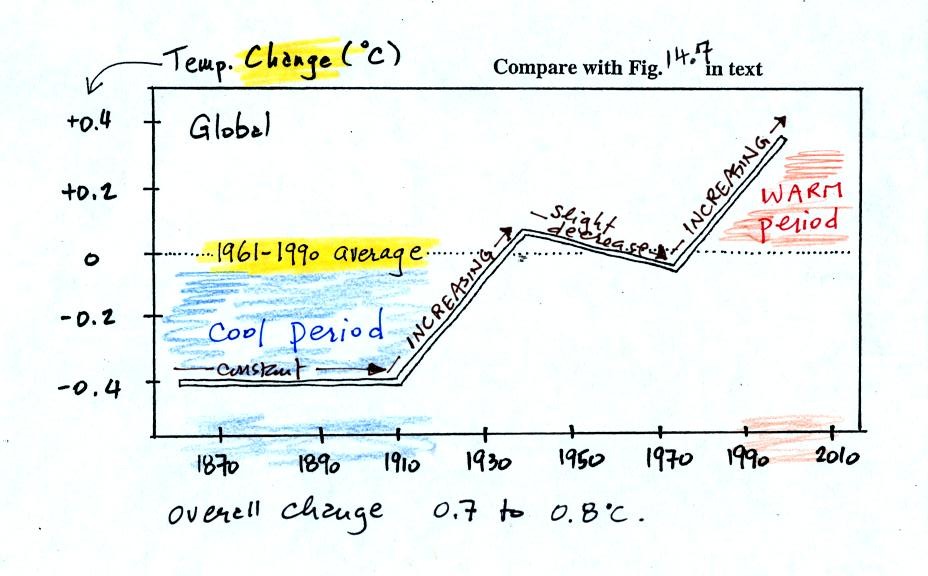 Temp. Change (°C)
Compare with Fig. 14.7 in text
+0.4
Global
+0.2
WARM
period
INCREASING
slight
decrease
INCREASING
0
1961-1990 average
-0.2
Cool period
constant
-0.4
1870 1890 1910 1930 1950 1970 1990 2010
overall change 0.7 to 0.8°C.